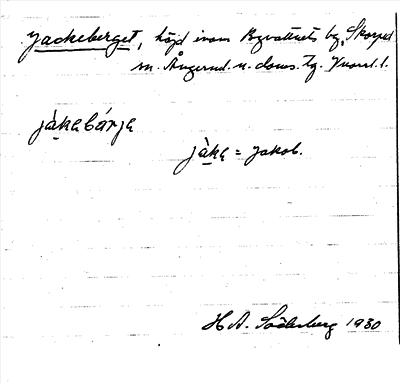 Jackeberget, höjd inom Byvattnets by, Skorped
sn. Ångerml. n. doms. Tg. Vuorel.
jàkabárja
jàka = Jakob.
H A. Söderberg 1930